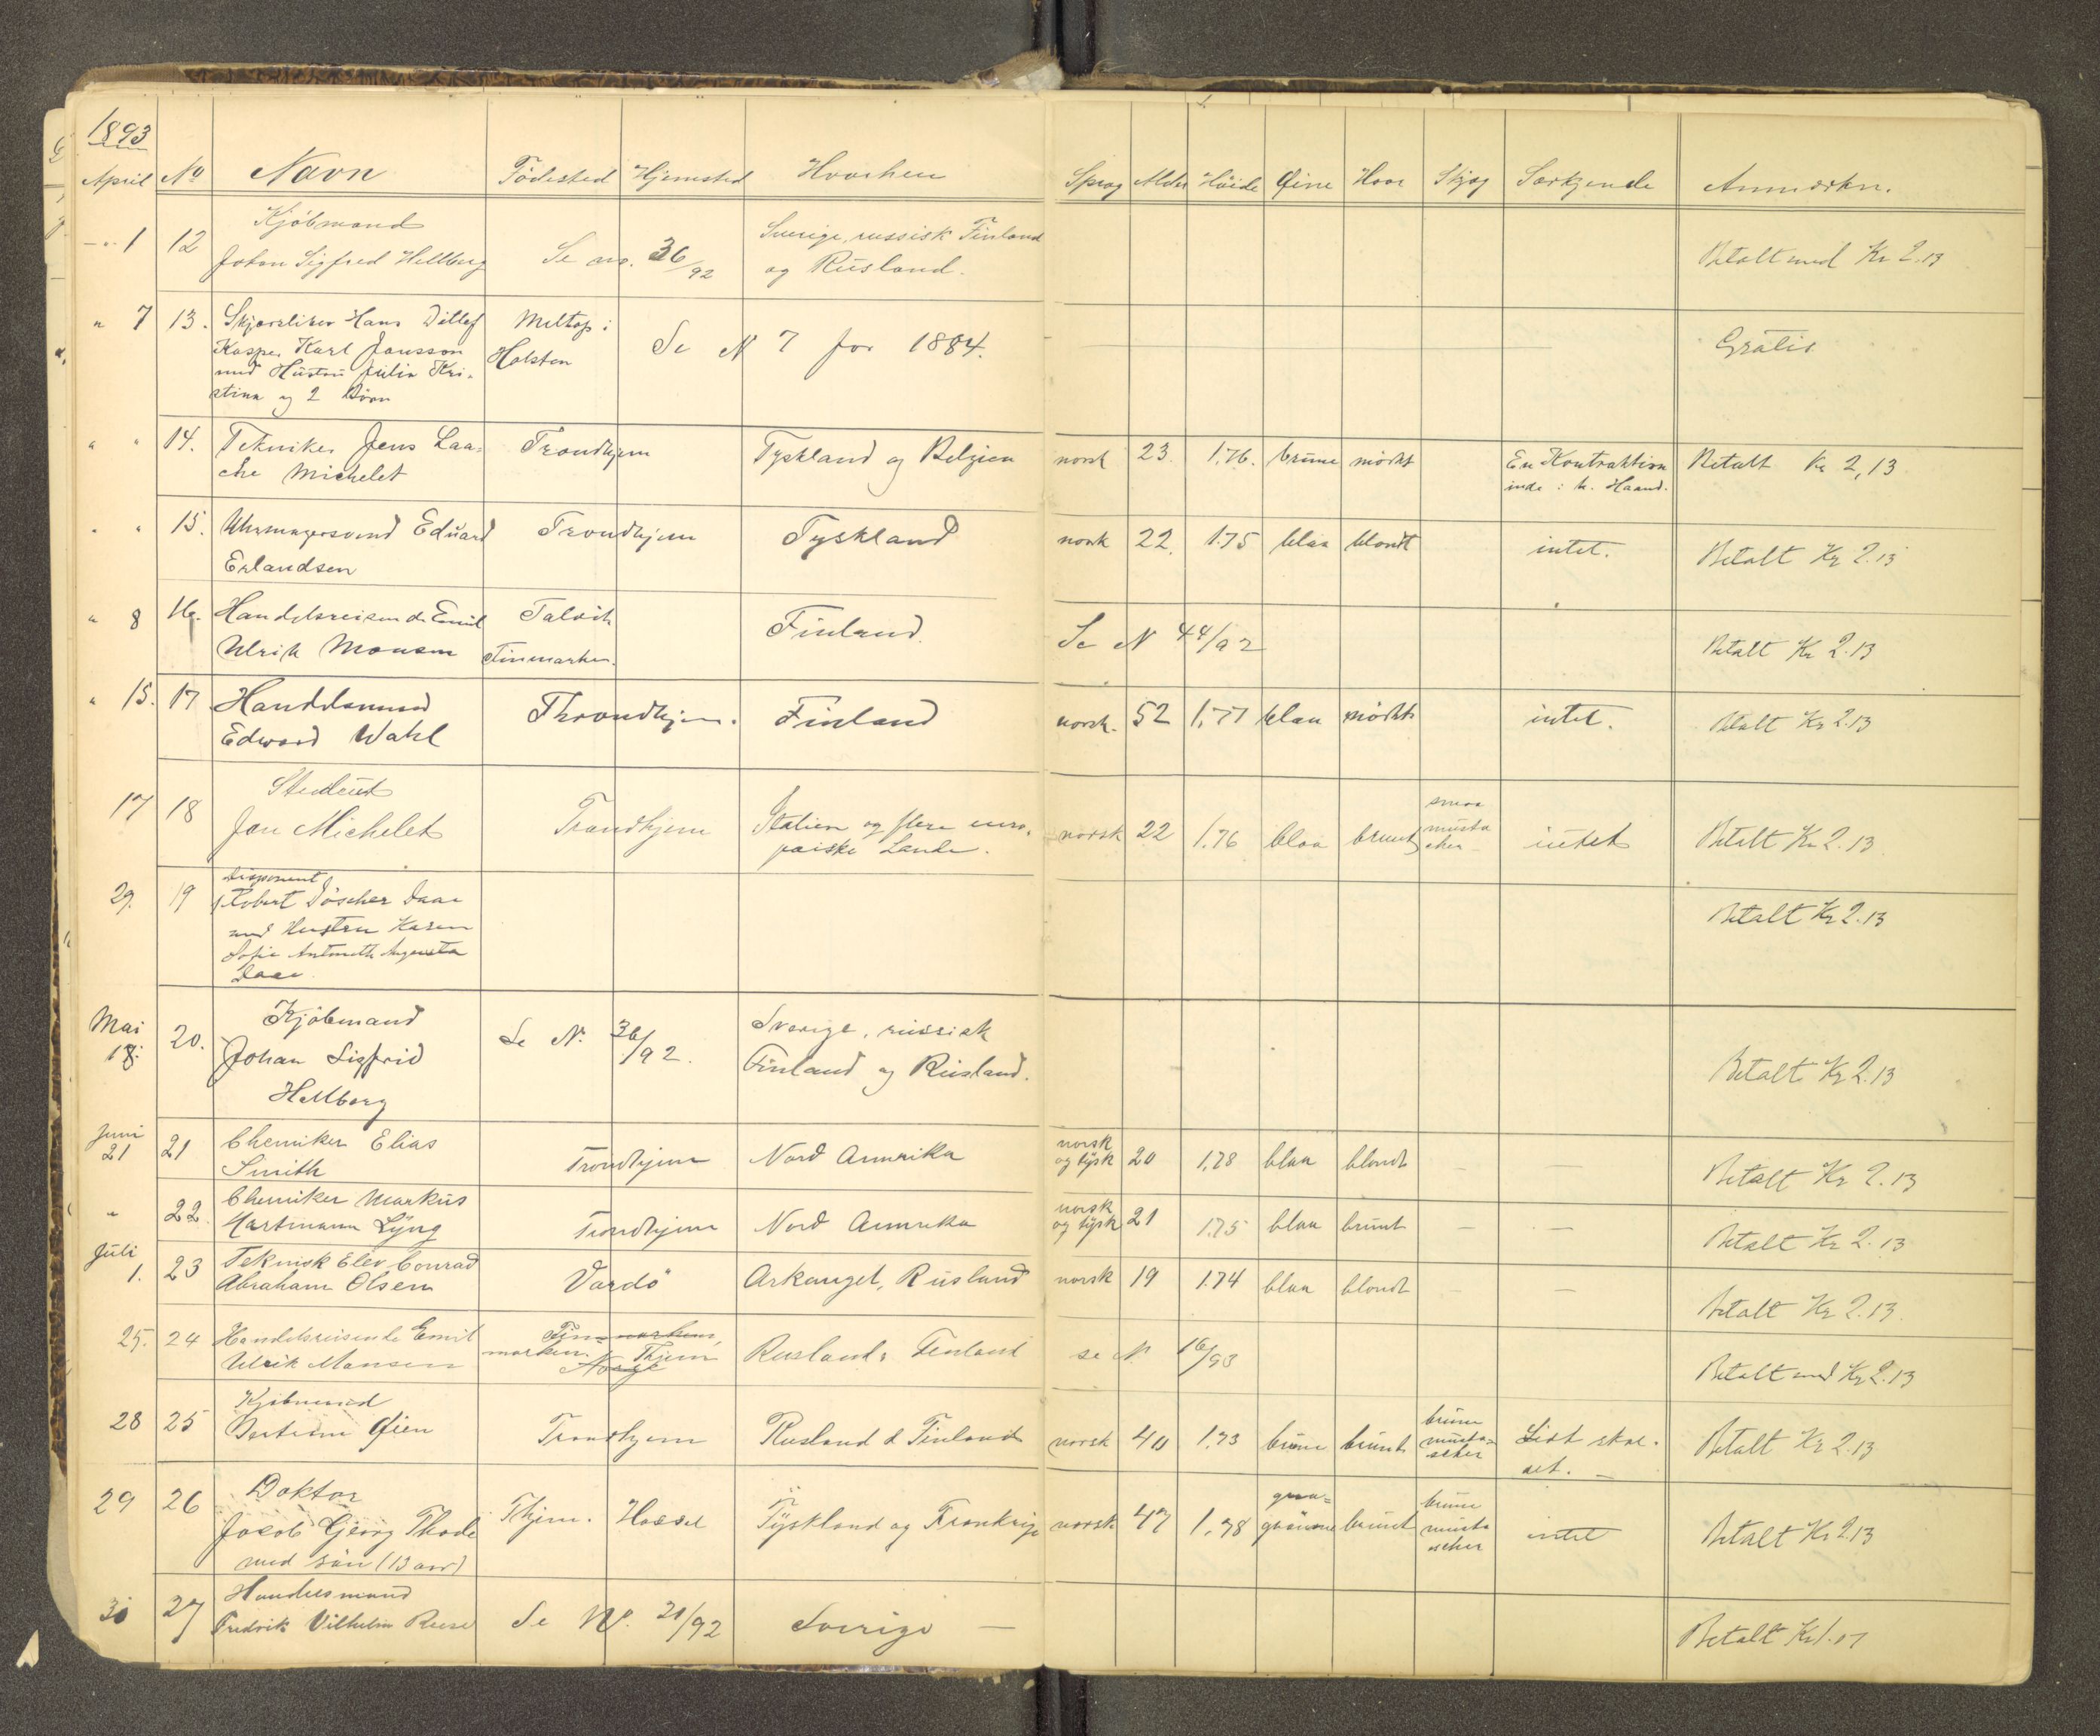 1893
April No Navn Fødested Hjemsted Hvorhen Sprog Alder Høide Øine Haar Skjæg Særkjende Anmærkn.
1 12 Kjöbmand
Johan Sigfred Hellberg Se no. 36/92 Sverige, russisk Finland
og Rusland. Betalt med Kr 2.13
" 7 13. Hans Ditlef Meltorp i
Kasper Karl Jansson Holsten Se N 7 for 1884. Gratis
med Hustru Julia Kri-
stina og 2 Börn
" " 14. Tekniker Jens Laa- Trondhjem Tyskland og Belgien norsk 23. 1.76. brune mörkt En Kontraktion Betalt Kr 2,13
che Michelet inde i h. Haand.
" " 15. Uhrmagersvend Eduard Trondhjem Tyskland norsk 22. 1.75 blaa blondt intet. Betalt Kr 2.13
Erlandsen
" 8 16. Handelsreisende Emil Talvik Finland. Se N 44/92 Betalt Kr 2.13
Ulrik Monsen Finmarken.
" 15. 17 Handelsmand Throndhjem. Finland norsk. 52 1,77 blaa mörkt intet. Betalt Kr 2.13
Edward Wahl
17 18 Student
Jan Michelet Trondhjem Italien og flere euro-
pæiske Lande. norsk 22 1.76 blaa brunt smaa
musta
cher intet Betalt Kr 2.13
29. 19 Disponent
Robert Döscher Daae
med Hustru Karen
Sofie Augusta
Daae. Betalt Kr 2.13
Mai
18. 20. Kjöbmand
Johan Sigfrid
Hellberg Se N. 36/92. Sverige, russisk
Finland og Rusland. Betalt Kr 2.13
Juni
21 21 Chemiker Elias
Smith Trondhjem Nord Amerika norsk
og tysk 20 1.78 blaa blondt — — Betalt Kr 2.13
" 22. Chemiker Markus
Hartmann Lyng Trondhjem Nord Amerika norsk
og tysk 21 1.75 blaa brunt — — Betalt Kr 2.13
Juli
1. 23 Teknisk Elev Conrad
Abraham Olsen Vardö Arkangel, Rusland norsk 19 1.74 blaa blondt — — Betalt Kr 2.13.
25. 24 Handelsreisende Emil
Ulrik Monsen Fin-marken,
marken. Thjem
Norge Rusland & Finland se N 16/93 Betalt med Kr 2.13
28 25 Kjöbmand
Øien Trondhjem Rusland & Finland norsk 40 1.73 brune brunt brune
musta-
scher Lidt skal-
det. — Betalt Kr 2.13
29 26 Doktor
Jacob Georg Thode
med sön (13 aar) Thjem. Hassel Tyskland og Frankrige norsk 47 1.78 graa-
grönne brunt brune
musta
scher intet Betalt Kr 2.13
30 27 Handelsmand
Fredrik Vilhelm Se No. 21/92 Sverige — Betalt Kr 1.07